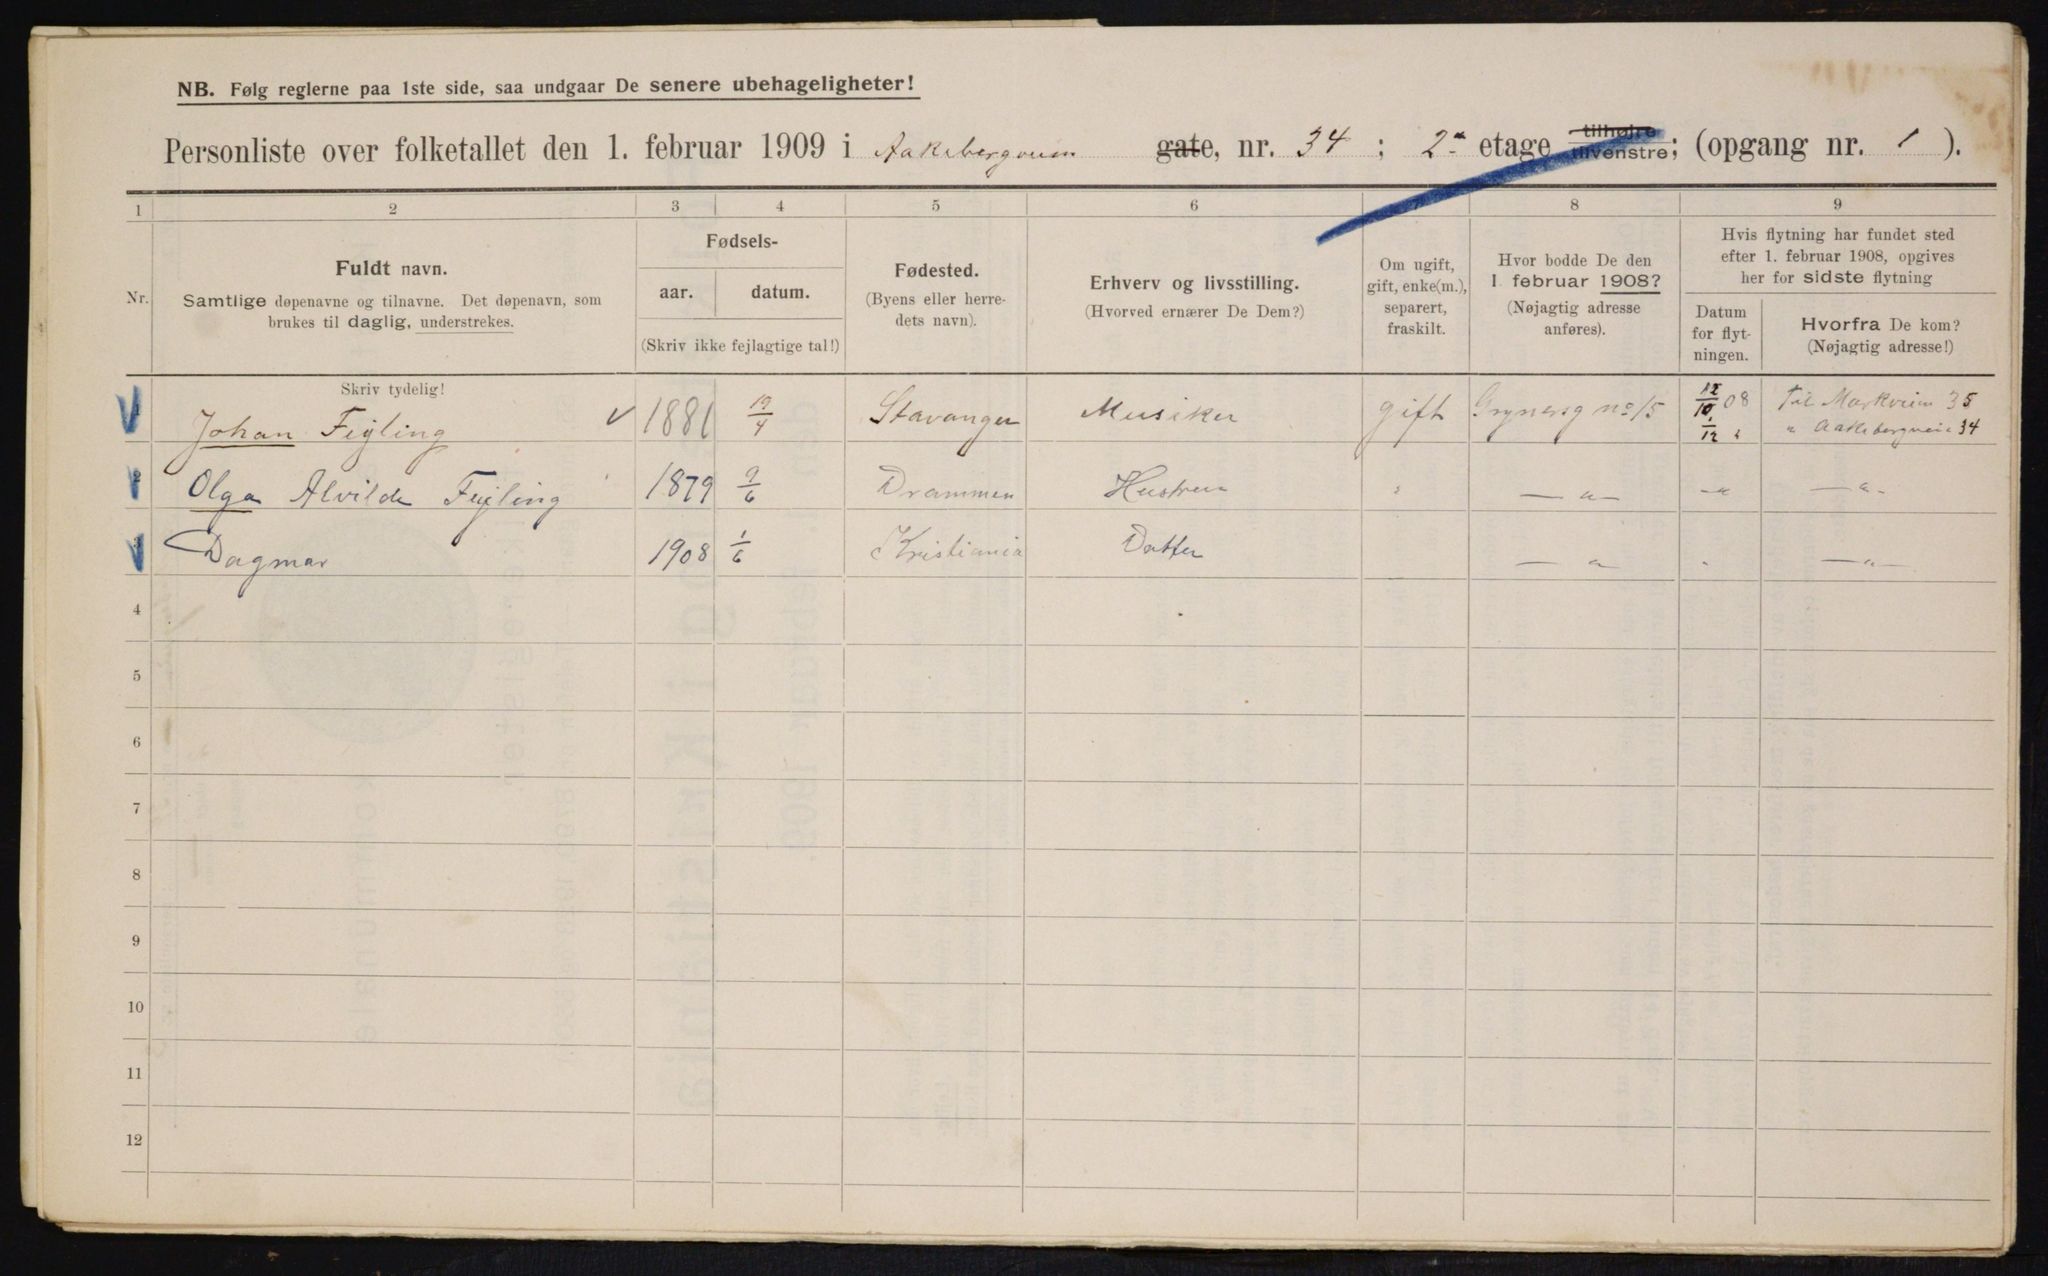 NB. Følg reglerne paa 1ste side, saa undgaar De senere ubehageligheter!
Personliste over folketallet den 1. februar 1909 i Aakebergveien gate, nr. 34 ; 2 etage tilhøjre tilvenstre; (opgang nr. 1 ).
1 2 3 4 5 6 7 8 9
Nr.
Fuldt navn.
Samtlige døpenavne og tilnavne. Det døpenavn, som
brukes til daglig, understrekes.
Fødsels-
aar. datum.
(Skriv ikke fejlagtige tal!)
Fødested.
(Byens eller herre-
dets navn).
Erhverv og livsstilling.
(Hvorved ernærer De Dem?)
Om ugift,
gift, enke(m.),
separert,
fraskilt.
Hvor bodde De den
1. februar 1908?
(Nøjagtig adresse
anføres).
Hvis flytning har fundet sted
efter 1. februar 1908, opgives
her for sidste flytning
Datum
for flyt-
ningen.
Hvorfra De kom?
(Nøjagtig adresse!)
Skriv tydelig!
1 Johan Feyling 1881 19/4 Stavanger Musiker gift Grynersg no 15 12/10 08 Til Markveien 35
1/12 " " Aakebergveie 34
2 Olga Alvilde Feyling 1879 9/6 Drammen Hustru " — " — — " — " —
3 Dagmar 1908 1/6 Kristiania Datter — " — " — " —
4
5
6
7
8
9
10
11
12